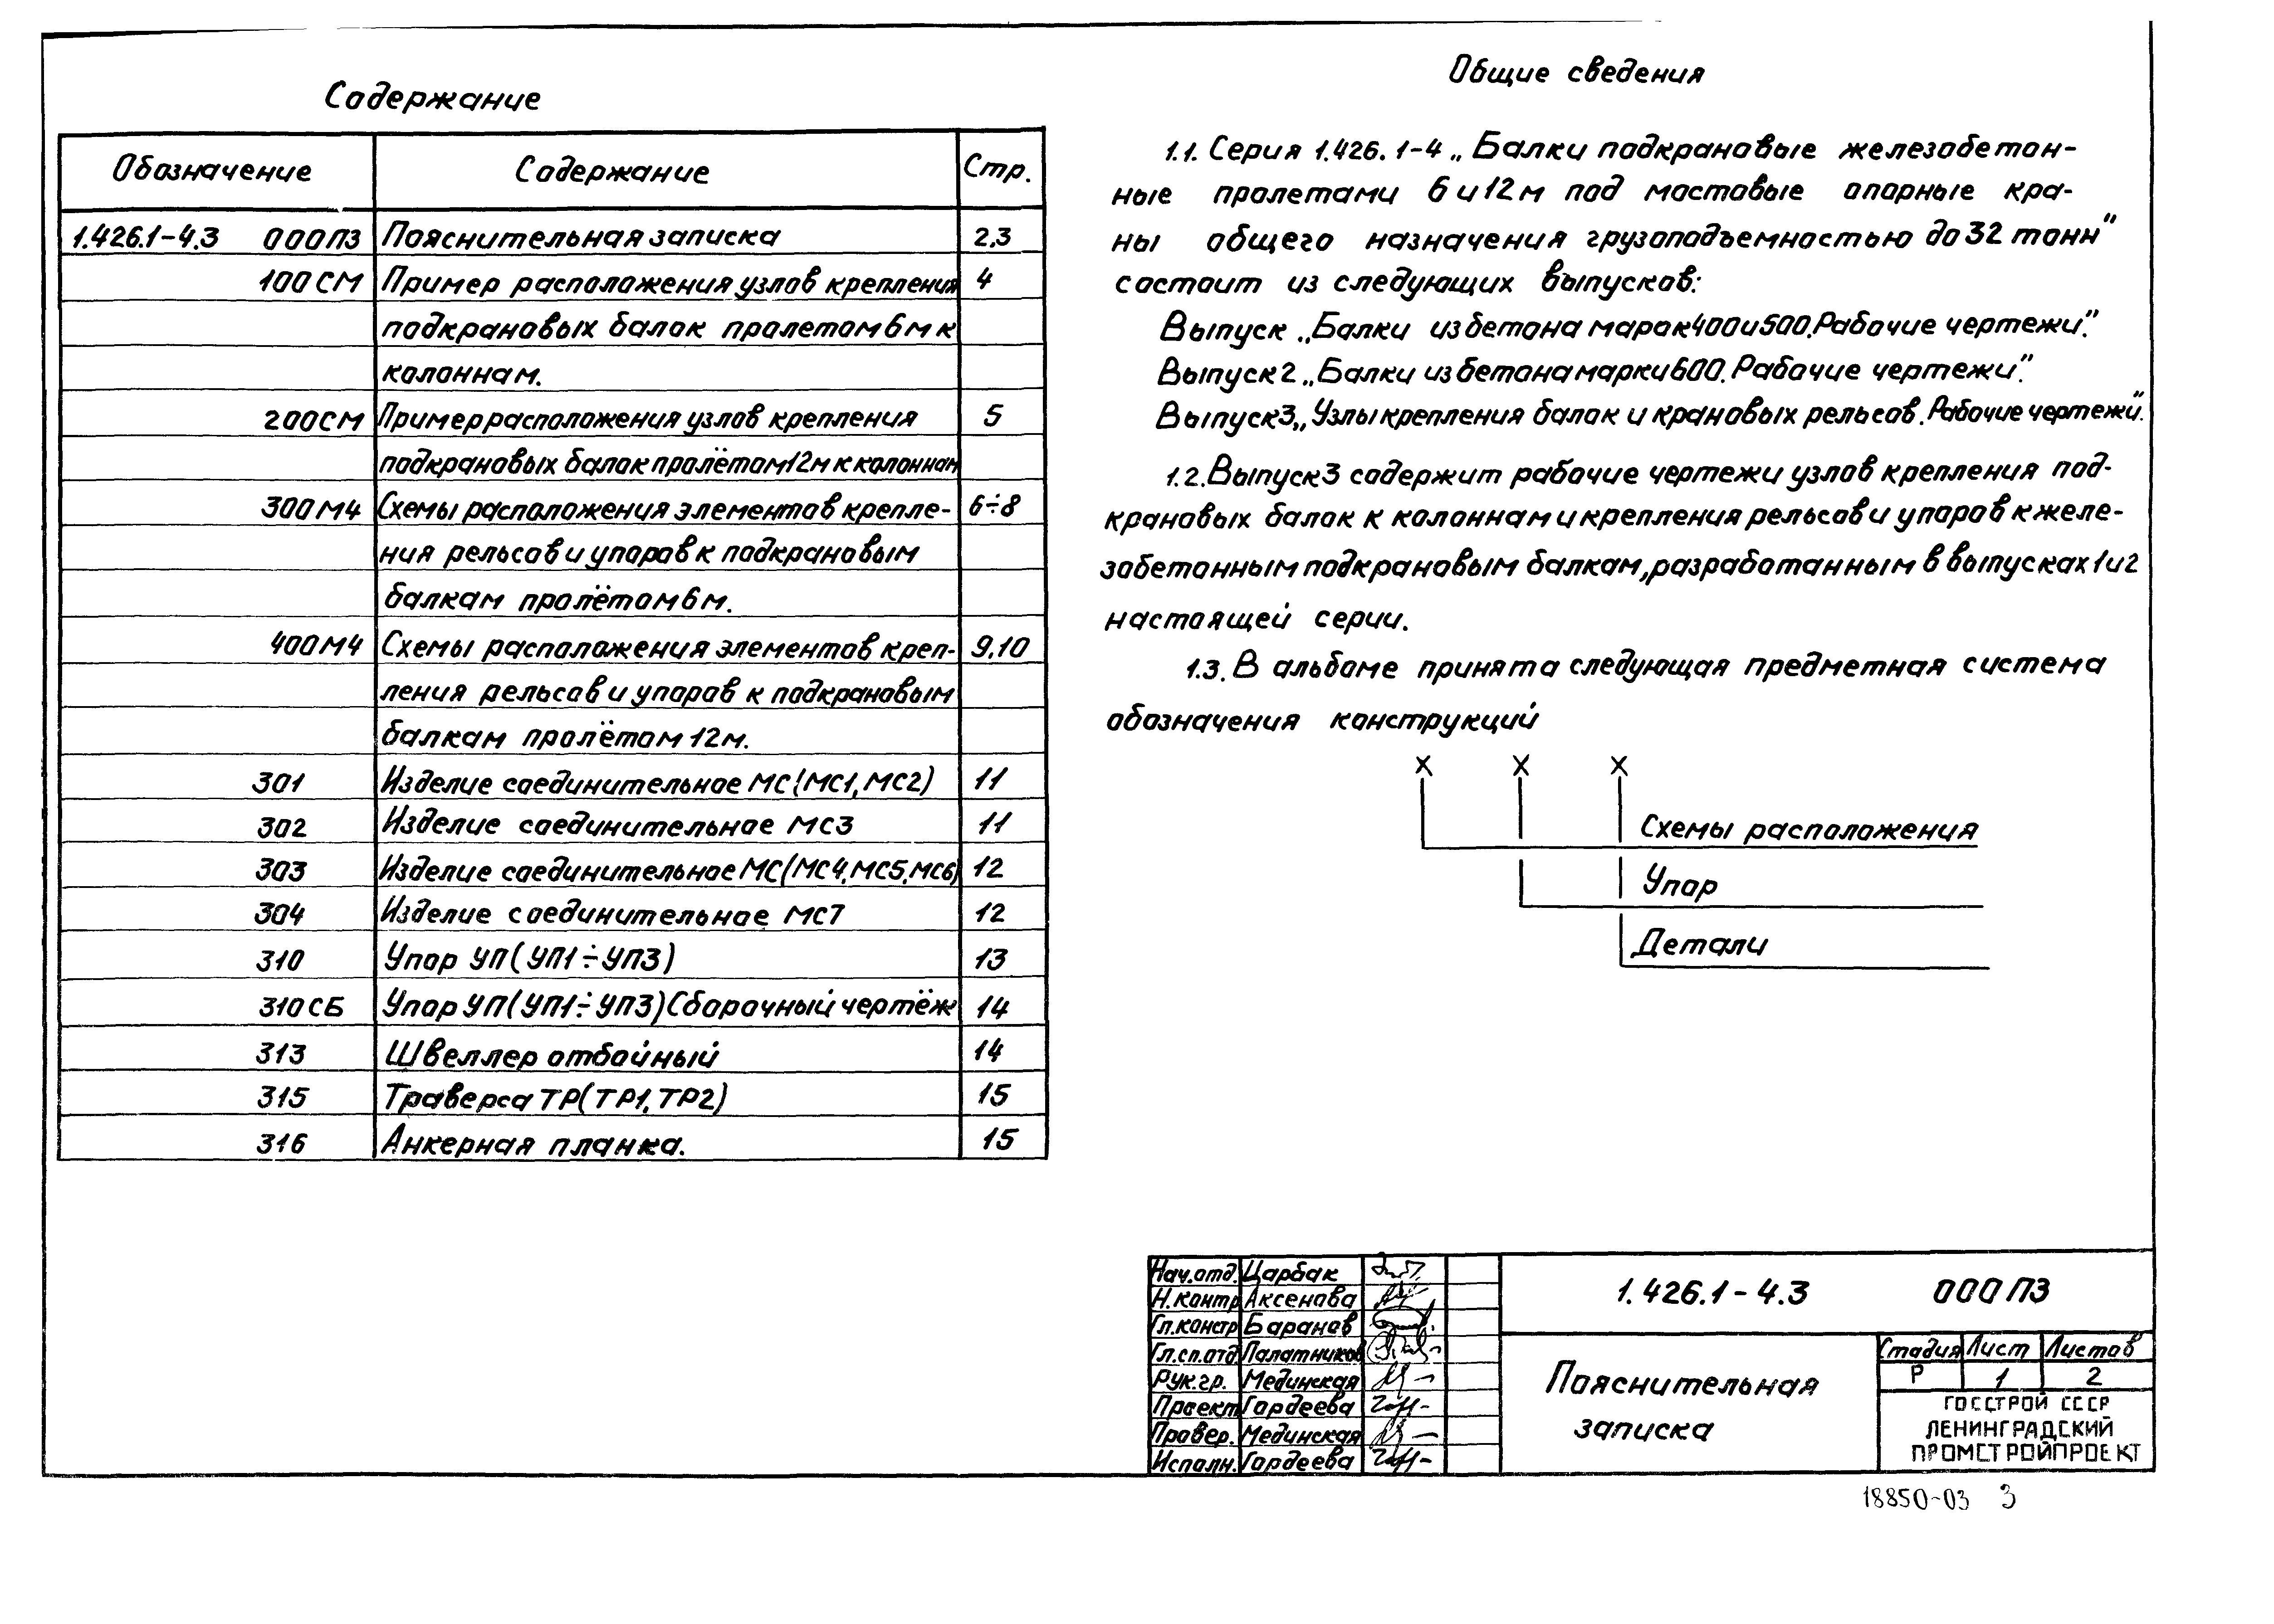 Содержание
Обозначение Содержание Стр.
1.426.1-4.3 000ПЗ Пояснительная записка 2,3
100СМ Пример расположения узлов крепления 4
подкрановых балок пролетом 6м к
колоннам.
200СМ Пример расположения узлов крепления 5
подкрановых балок пролётом 12м к колоннам
300М4 Схемы расположения элементов крепле- 6÷8
ния рельсов и упоров к подкрановым
балкам пролётом 6м.
400М4 Схемы расположения элементов креп- 9,10
ления рельсов и упоров к подкрановым
балкам пролётом 12м.
301 Изделие соединительное МС(МС1, МС2) 11
302 Изделие соединительное МС3 11
303 Изделие соединительное МС(МС4, МС5, МС6) 12
304 Изделие соединительное МС7 12
310 Упор УП(УП1÷УП3) 13
310СБ Упор УП(УП1÷УП3) Сборочный чертёж 14
313 Швеллер отбойный 14
315 Траверса ТР(ТР1, ТР2) 15
316 Анкерная планка. 15
Общие сведения
1.1. Серия 1.426.1-4 „Балки подкрановые железобетон-
ные пролетами 6 и 12м под мостовые опорные кра-
ны общего назначения грузоподъемностью до 32 тонн"
состоит из следующих выпусков:
Выпуск „Балки из бетона марок 400 и 500. Рабочие чертежи".
Выпуск 2 „Балки из бетона марки 600. Рабочие чертежи".
Выпуск 3 „Узлы крепления балок и крановых рельсов. Рабочие чертежи".
1.2. Выпуск 3 содержит рабочие чертежи узлов крепления под-
крановых балок к колоннам и крепления рельсов и упоров к желе-
зобетонным подкрановым балкам, разработанным в выпусках 1 и 2
настоящей серии.
1.3. В альбоме принята следующая предметная система
обозначения конструкций
X X X
Схемы расположения
Упор
Детали
Нач.отд. Царбак
Н.контр Аксенова
Гл.констр Баранов
Гл.сп.отд. Палатников
Рук.гр. Мединская
Проект Гордеева
Провер. Мединская
Исполн. Гордеева
1.426.1-4.3 000ПЗ
Пояснительная
записка
Стадия Лист Листов
Р 1 2
ГОССТРОЙ СССР
ЛЕНИНГРАДСКИЙ
ПРОМСТРОЙПРОЕКТ
18850-03 3